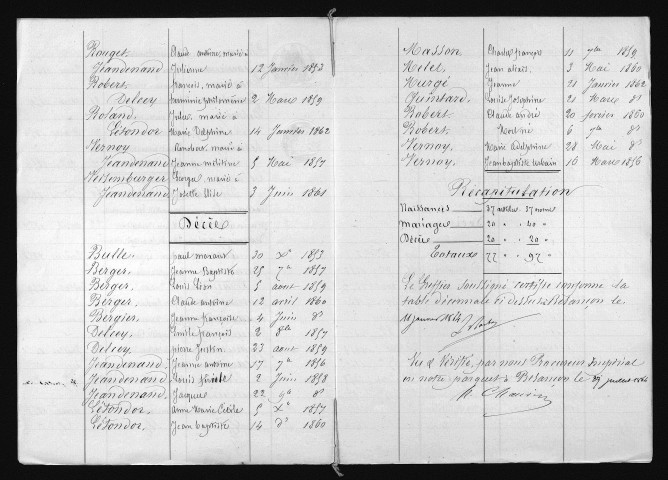 Rouget. Claude antoine, marié à
Jeandenand Julienne 12 Janvier 1853
Robert. françois, marié à
Delcey 2 Mars 1859
Roland Jules, marié à
Létondor Marie Delphine 14 Janvier 1862
Vernoy marié à
Jeandenand Jeanne 5 Mai 1857
Weissemburger George marié à
Jeandenand Josette Elise 3 Juin 1861
Décès
Bulle paul 20 Xe 1853
Berger, Jeanne Baptiste 25 7e 1857
Berger, Louis Léon 5 aout 1859
Berger Claude antoine 12 avril 1860
Bergier Jeanne françoise 4 Juin do
Delcey, Emile françois 2 8bre 1857
Delcey pierre Justin 23 aout 1859
Jeandenand, Jeanne antoine 17 7e 1856
Jeandenand Louis 2 Juin 1858
Jeandenand Jacques 22 9e do
Létondor, anne Marie Cécile 5 Xe 1857
Létondor, Jean baptiste 14 do 1860
Masson Charles françois 11 9bre 1859
Milet, Jean alexis 3 Mai 1860
Mergé Jeanne 21 Janvier 1862
Quintard, Louise Joséphine 21 Mars do
Robert. Claude andré 20 fevrier 1860
Robert, 6 9e do
Vernoy. Marie Adelphine 28 Mai do
Vernoy, Jeanbaptiste Urbain 16 Mars 1856
Récapitulation
Naissances 37 articles 37 noms
Mariages 20 " 40 "
Décès 20 " 20 "
Totaux 77 " 97 "
Le Greffier soussigné certifie conforme la
table décennale ci dessus Besançon le
11 janvier 1864
Vu & Vérifié, par nous Procureur Impérial
en notre parquet à Besançon le 27 juillet 1864